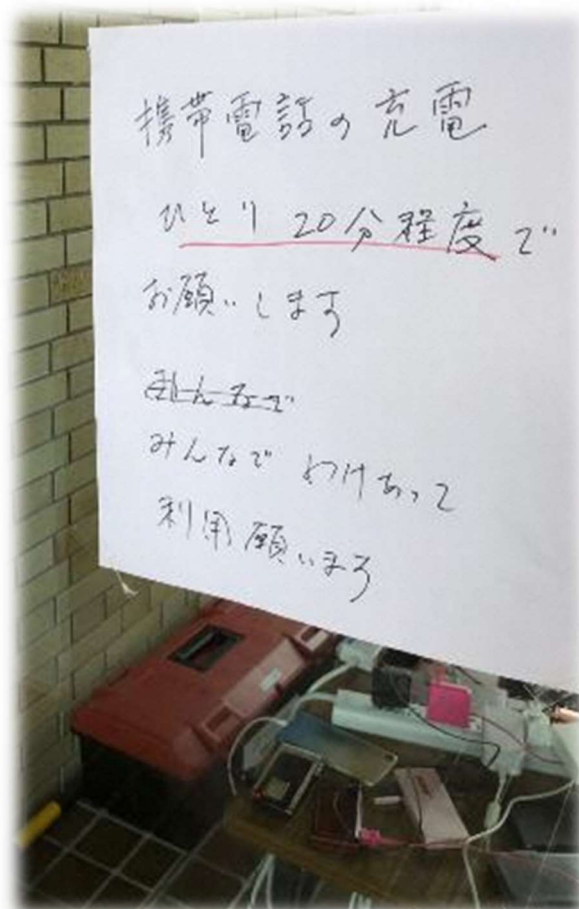 携帯電話の充電
ひとり 20分程度で
お願いします
みんなで
みんなで わけあって
利用願います